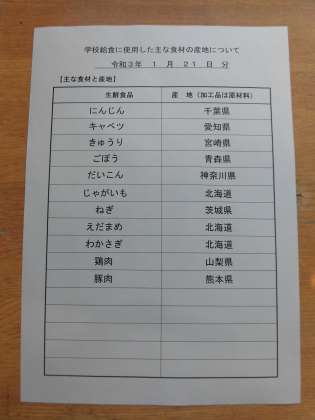 学校給食に使用した主な食材の産地について
令和3年 1 月 21 日 分
【主な食材と産地】
生鮮食品 産 地（加工品は原材料）
にんじん 千葉県
キャベツ 愛知県
きゅうり 宮崎県
ごぼう 青森県
だいこん 神奈川県
じゃがいも 北海道
ねぎ 茨城県
えだまめ 北海道
わかさぎ 北海道
鶏肉 山梨県
豚肉 熊本県